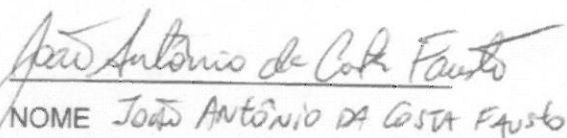 João Antônio da Costa Fausto
NOME JOÃO ANTÔNIO DA COSTA FAUSTO